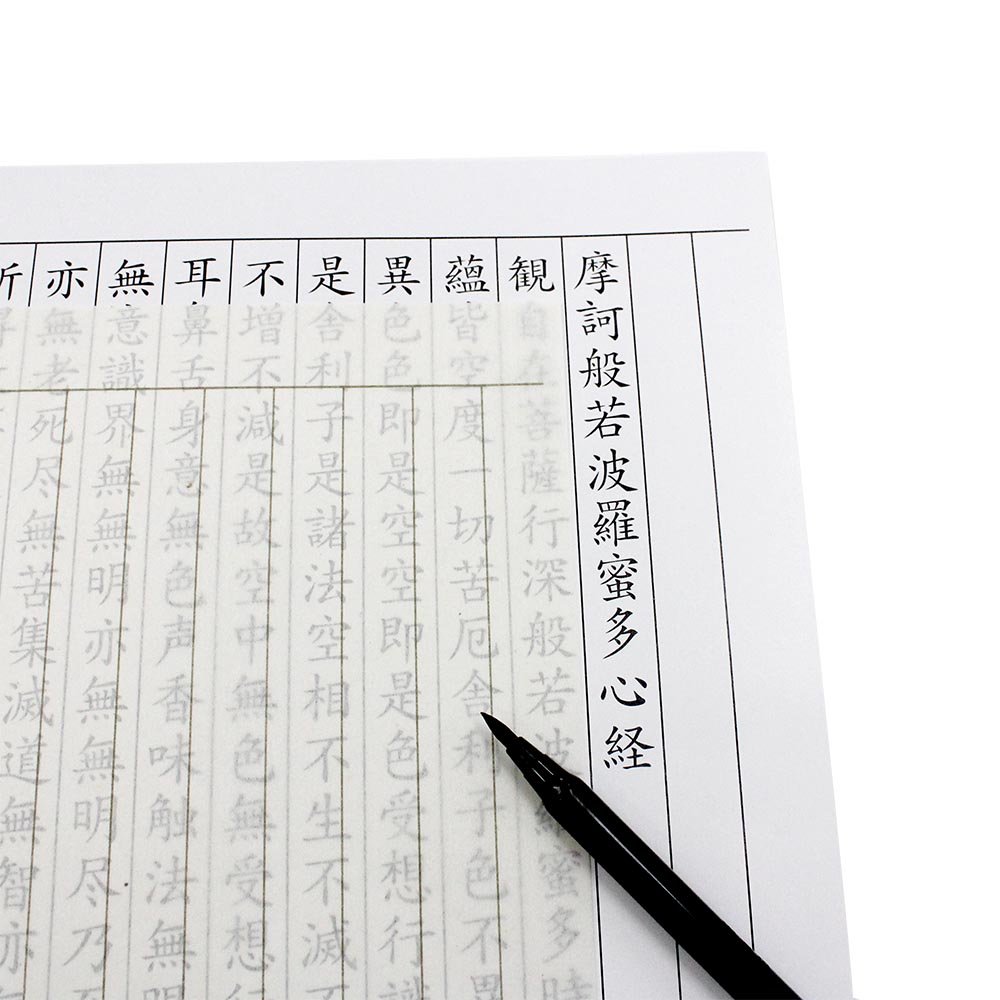 摩訶般若波羅蜜多心経
観自在菩薩行深般若波羅蜜多時
蘊皆空度一切苦厄舎利子色不異
異色色即是空空即是色受想行識
是舎利子是諸法空相不生不滅不
不増不減是故空中無色無受想行
耳鼻舌身意無色声香味触法無眼
無意識界無無明亦無無明尽乃至
亦無老死尽無苦集滅道無智亦
所得